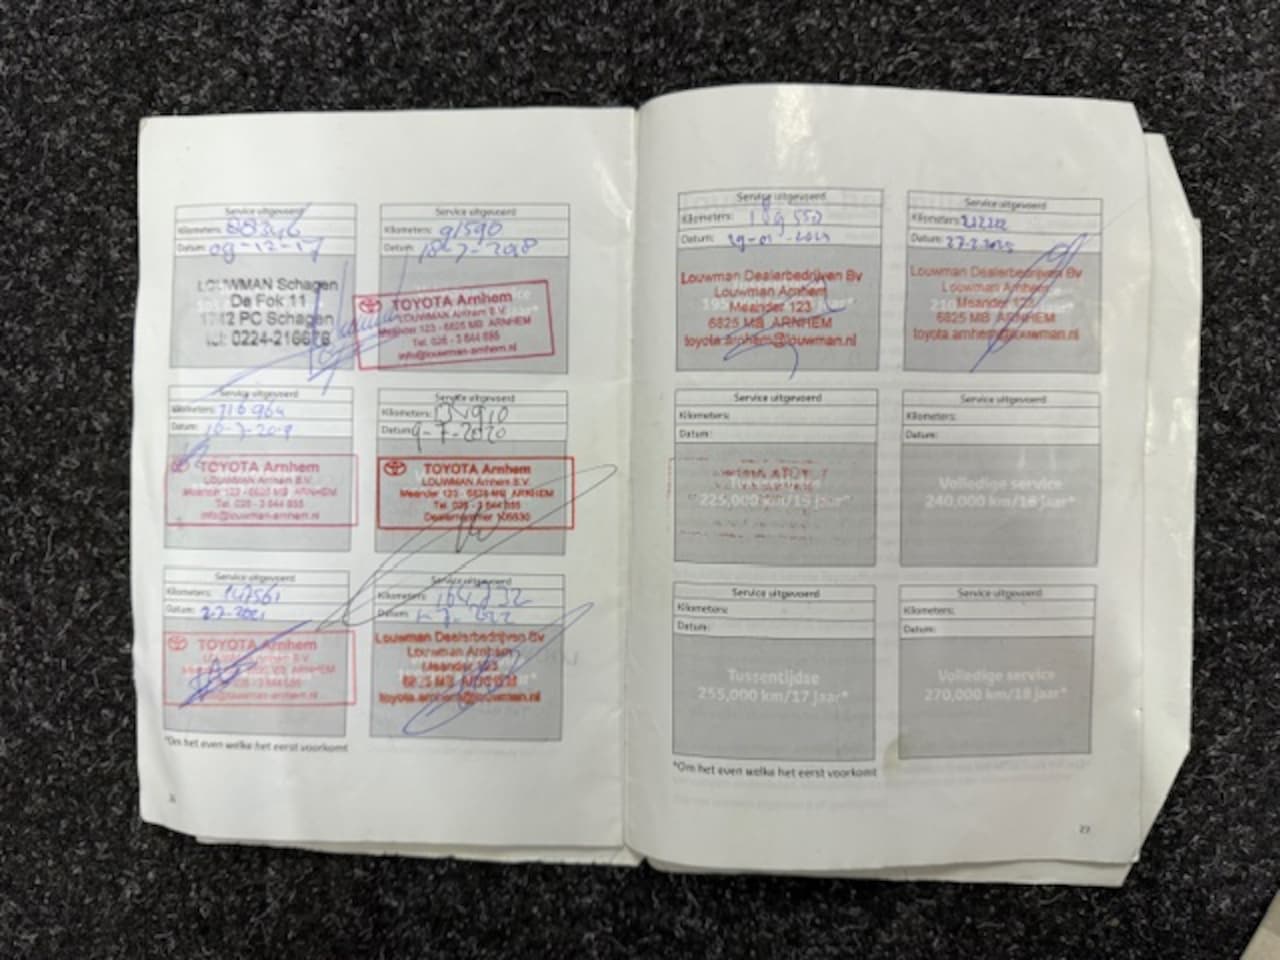 Service uitgevoerd
Kilometers: 88346
Datum: 09-12-17
LOUWMAN Schagen
De Fok 11
1742 PC Schagen
tel: 0224-216678
Service uitgevoerd
Kilometers: 91590
Datum: 18-7-2018
TOYOTA Arnhem
LOUWMAN Arnhem B.V.
Meander 123 - 6825 MB ARNHEM
Tel. 026 - 3 644 655
info@louwman-arnhem.nl
Service uitgevoerd
Kilometers: 116964
Datum:
TOYOTA Arnhem
LOUWMAN Arnhem B.V.
Meander 123 - 6825 MB ARNHEM
Tel. 026 - 3 644 655
info@louwman-arnhem.nl
Service uitgevoerd
Kilometers:
Datum: 9-7-2020
TOYOTA Arnhem
LOUWMAN Arnhem B.V.
Meander 123 - 6825 MB ARNHEM
Tel. 026 - 3 644 655
Dealernummer
Service uitgevoerd
Kilometers: 147561
Datum: 2-7-2021
TOYOTA Arnhem
Service uitgevoerd
Kilometers: 164732
Datum: 1-7-2022
Louwman Dealerbedrijven Bv
Louwman Arnhem
Meander 123
6825 MB ARNHEM
toyota.arnhem@louwman.nl
*Om het even welke het eerst voorkomt
Service uitgevoerd
Kilometers: 189550
Datum:
Louwman Dealerbedrijven Bv
Louwman Arnhem
Meander 123
6825 MB ARNHEM
toyota.arnhem@louwman.nl
Service uitgevoerd
Kilometers:
Datum: 27-2-2025
Louwman Dealerbedrijven Bv
Louwman Arnhem
Meander 123
6825 MB ARNHEM
toyota.arnhem@louwman.nl
Service uitgevoerd
Kilometers:
Datum:
225,000 km/15 jaar*
Service uitgevoerd
Kilometers:
Datum:
Volledige service
240,000 km/16 jaar*
Service uitgevoerd
Kilometers:
Datum:
Tussentijdse
255,000 km/17 jaar*
Service uitgevoerd
Kilometers:
Datum:
Volledige service
270,000 km/18 jaar*
*Om het even welke het eerst voorkomt
27